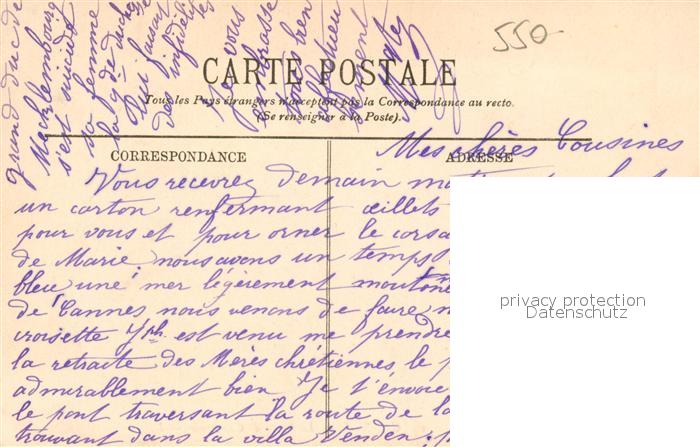 550
CARTE POSTALE
Tous les Pays étrangers n'acceptent pas la Correspondance au recto.
(Se renseigner à la Poste).
CORRESPONDANCE
ADRESSE
Mes chères Cousines
Vous recevrez demain
un carton renfermant œillets
pour vous et pour orner le corsa
de Marie, nous avons un temps
bleu une mer légèrement moutonn
de Cannes nous venons de faire
croisette Jph est venu me prendre
la retraite des Mères chrétiennes, le p
admirablement bien Je t'envoie
le pont traversant la route de la
trouvant dans la villa Venden
grand duc de
Mecklembourg
s'est suicidé
sa femme
la gde duchesse
lui faisait
des infidélités
Je vous
embrasse
tous bien
affectueu
sement
privacy protection
Datenschutz